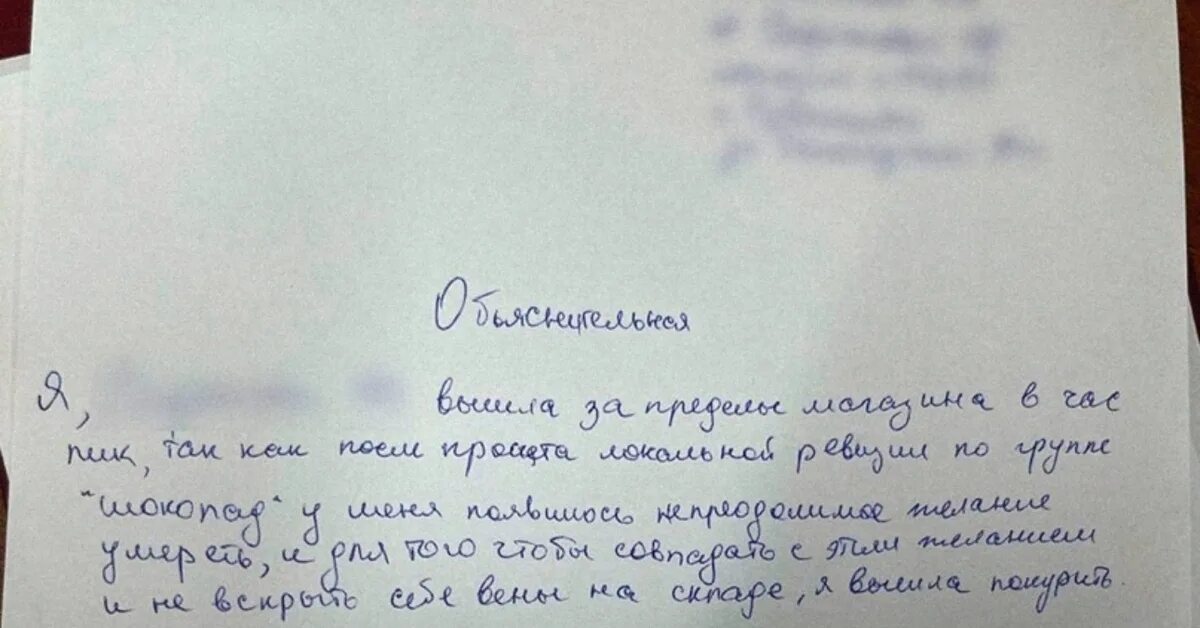 Объяснительная
Я, вышла за пределы магазина в час
пик, так как после просчета локальной ревизии по группе
"шоколад" у меня появилось непреодолимое желание
умереть, и для того чтобы совладать с этим желанием
и не вскрыть себе вены на складе, я вышла покурить.